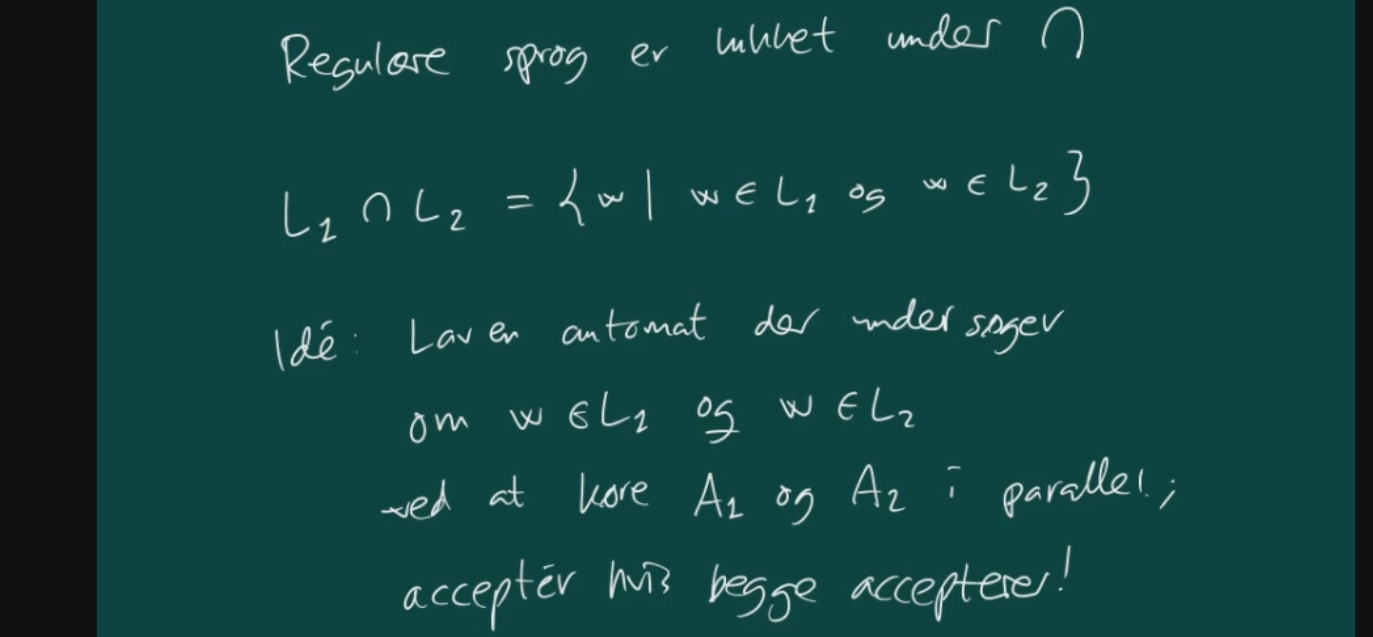 Regulære sprog er lukket under ∩
L₁ ∩ L₂ = {w | w ∈ L₁ og w ∈ L₂}
Idé: Lav en automat der undersøger
om w ∈ L₁ og w ∈ L₂
ved at køre A₁ og A₂ i parallel;
acceptér hvis begge accepterer!